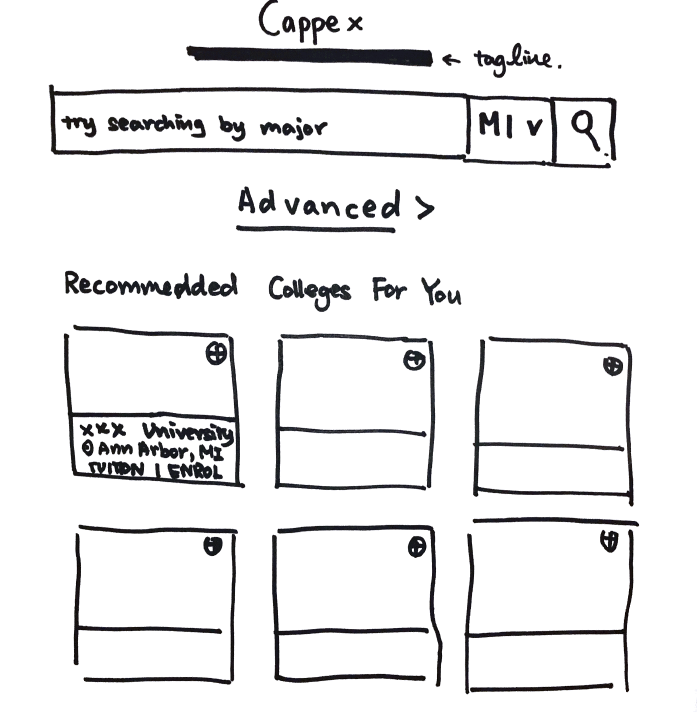 Cappex
← tagline.
try searching by major MI v
Advanced >
Recommedded Colleges For You
xxx University
Ann Arbor, MI
TUITION | ENROL